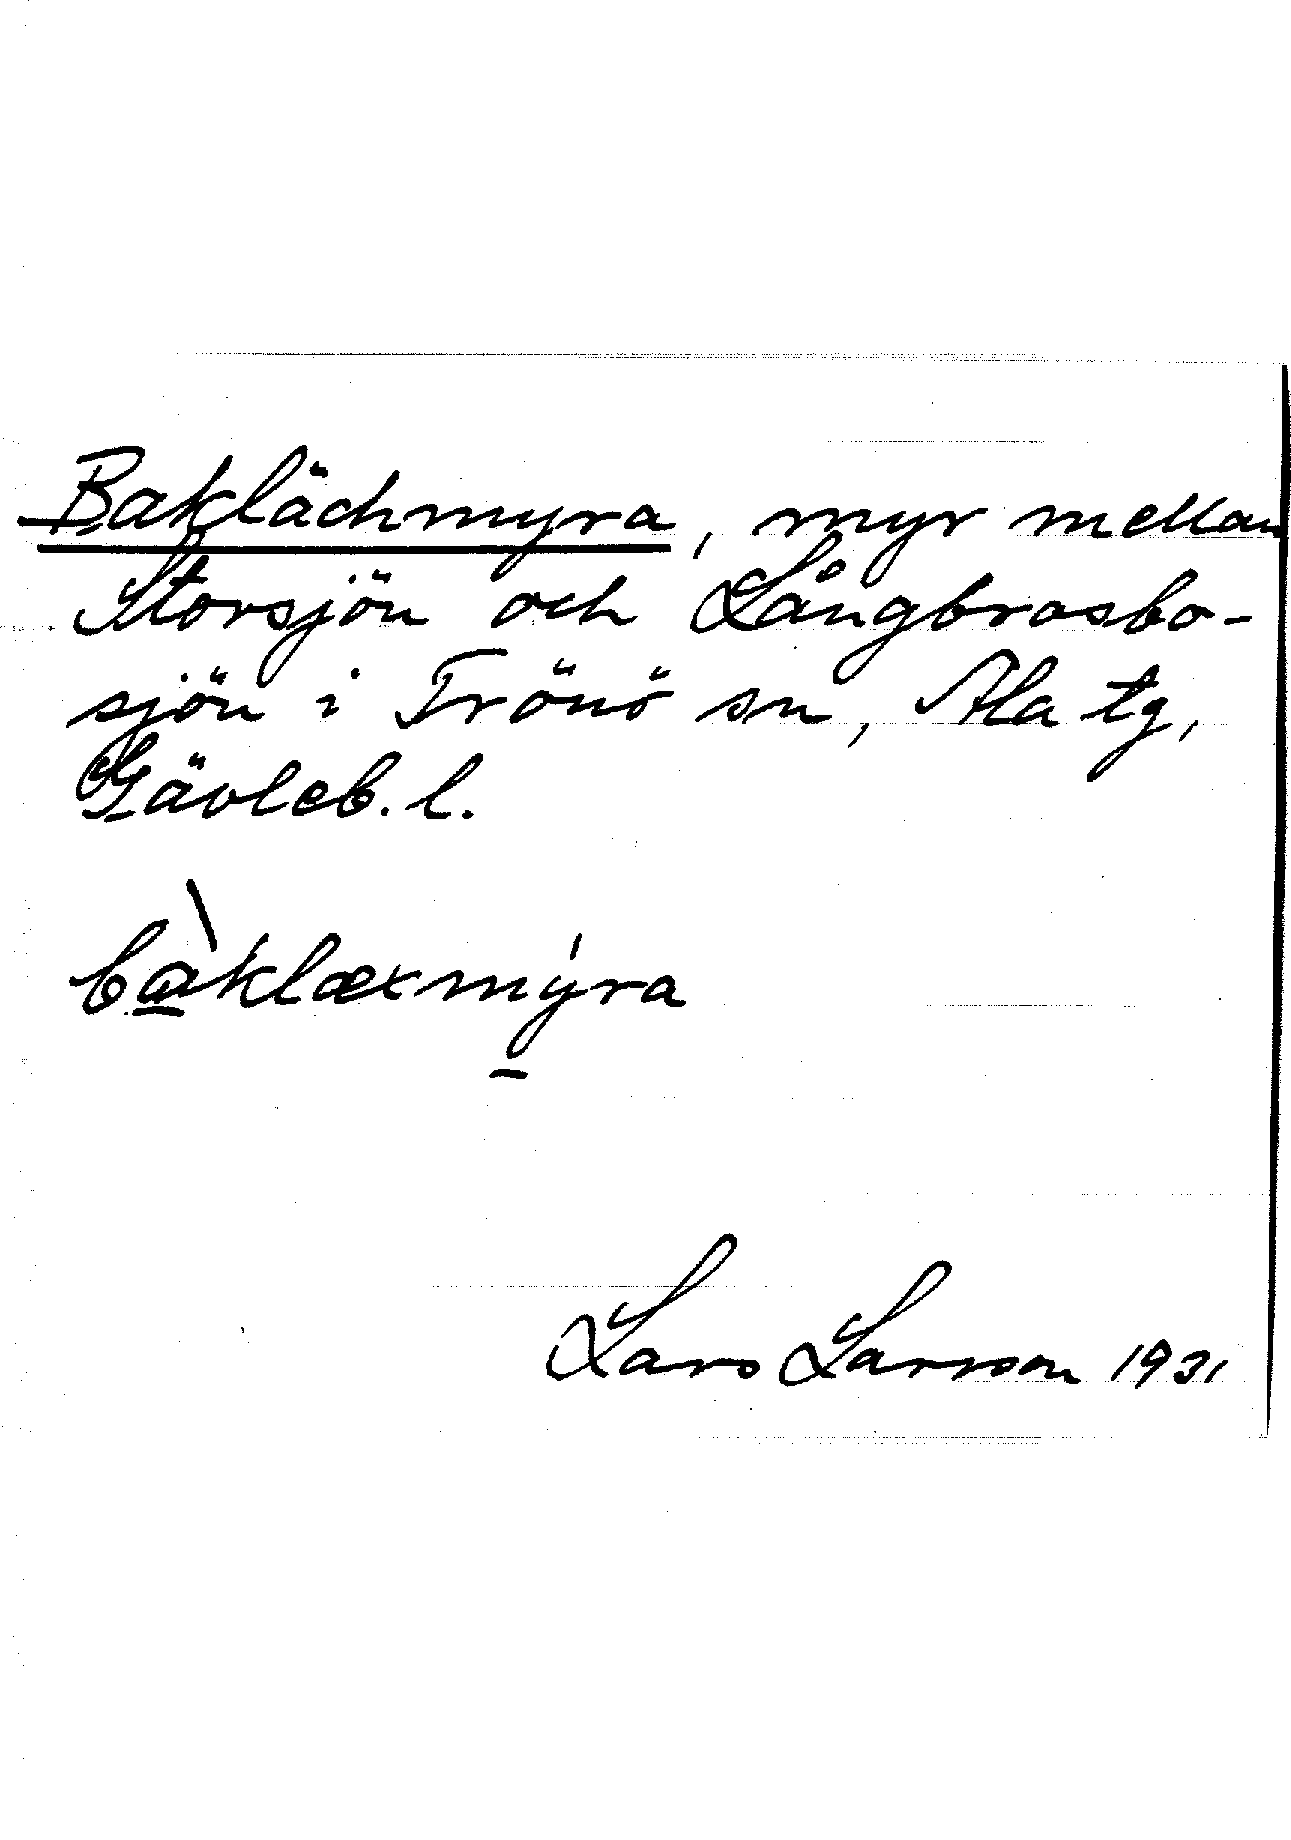 Baklächmyra, myr mellan
Storsjön och Långbrosbo-
sjön i Trönö sn, Ala tg,
Gävleb. l.
bàklæxmýra
Lars Larsson 1931